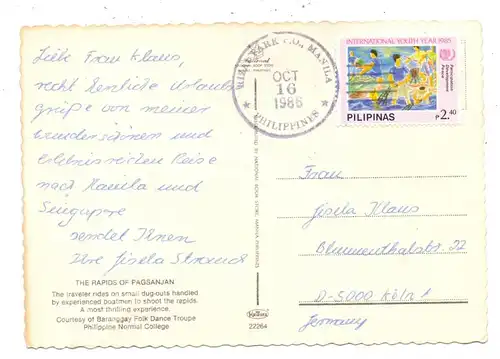 Liebe Frau Klaus,
recht herzliche Urlaubs
grüße von meiner
wunderschönen und
erlebnisreichen Reise
nach Manila und
Singapore
sendet Ihnen
Ihre Gisela
THE RAPIDS OF PAGSANJAN
The traveler rides on small dug-outs handled
by experienced boatmen to shoot the rapids.
A most thrilling experience.
Courtesy of Baranggay Folk Dance Troupe
Philippine Normal College
22264
RIZAL PARK P.O., MANILA
OCT
16
1986
★ PHILIPPINES ★
INTERNATIONAL YOUTH YEAR 1985
Participation
Development
Peace
PILIPINAS
P2.40
Frau
Gisela Klaus
Blumenthalstr. 22
D-5000 Köln 1
Germany